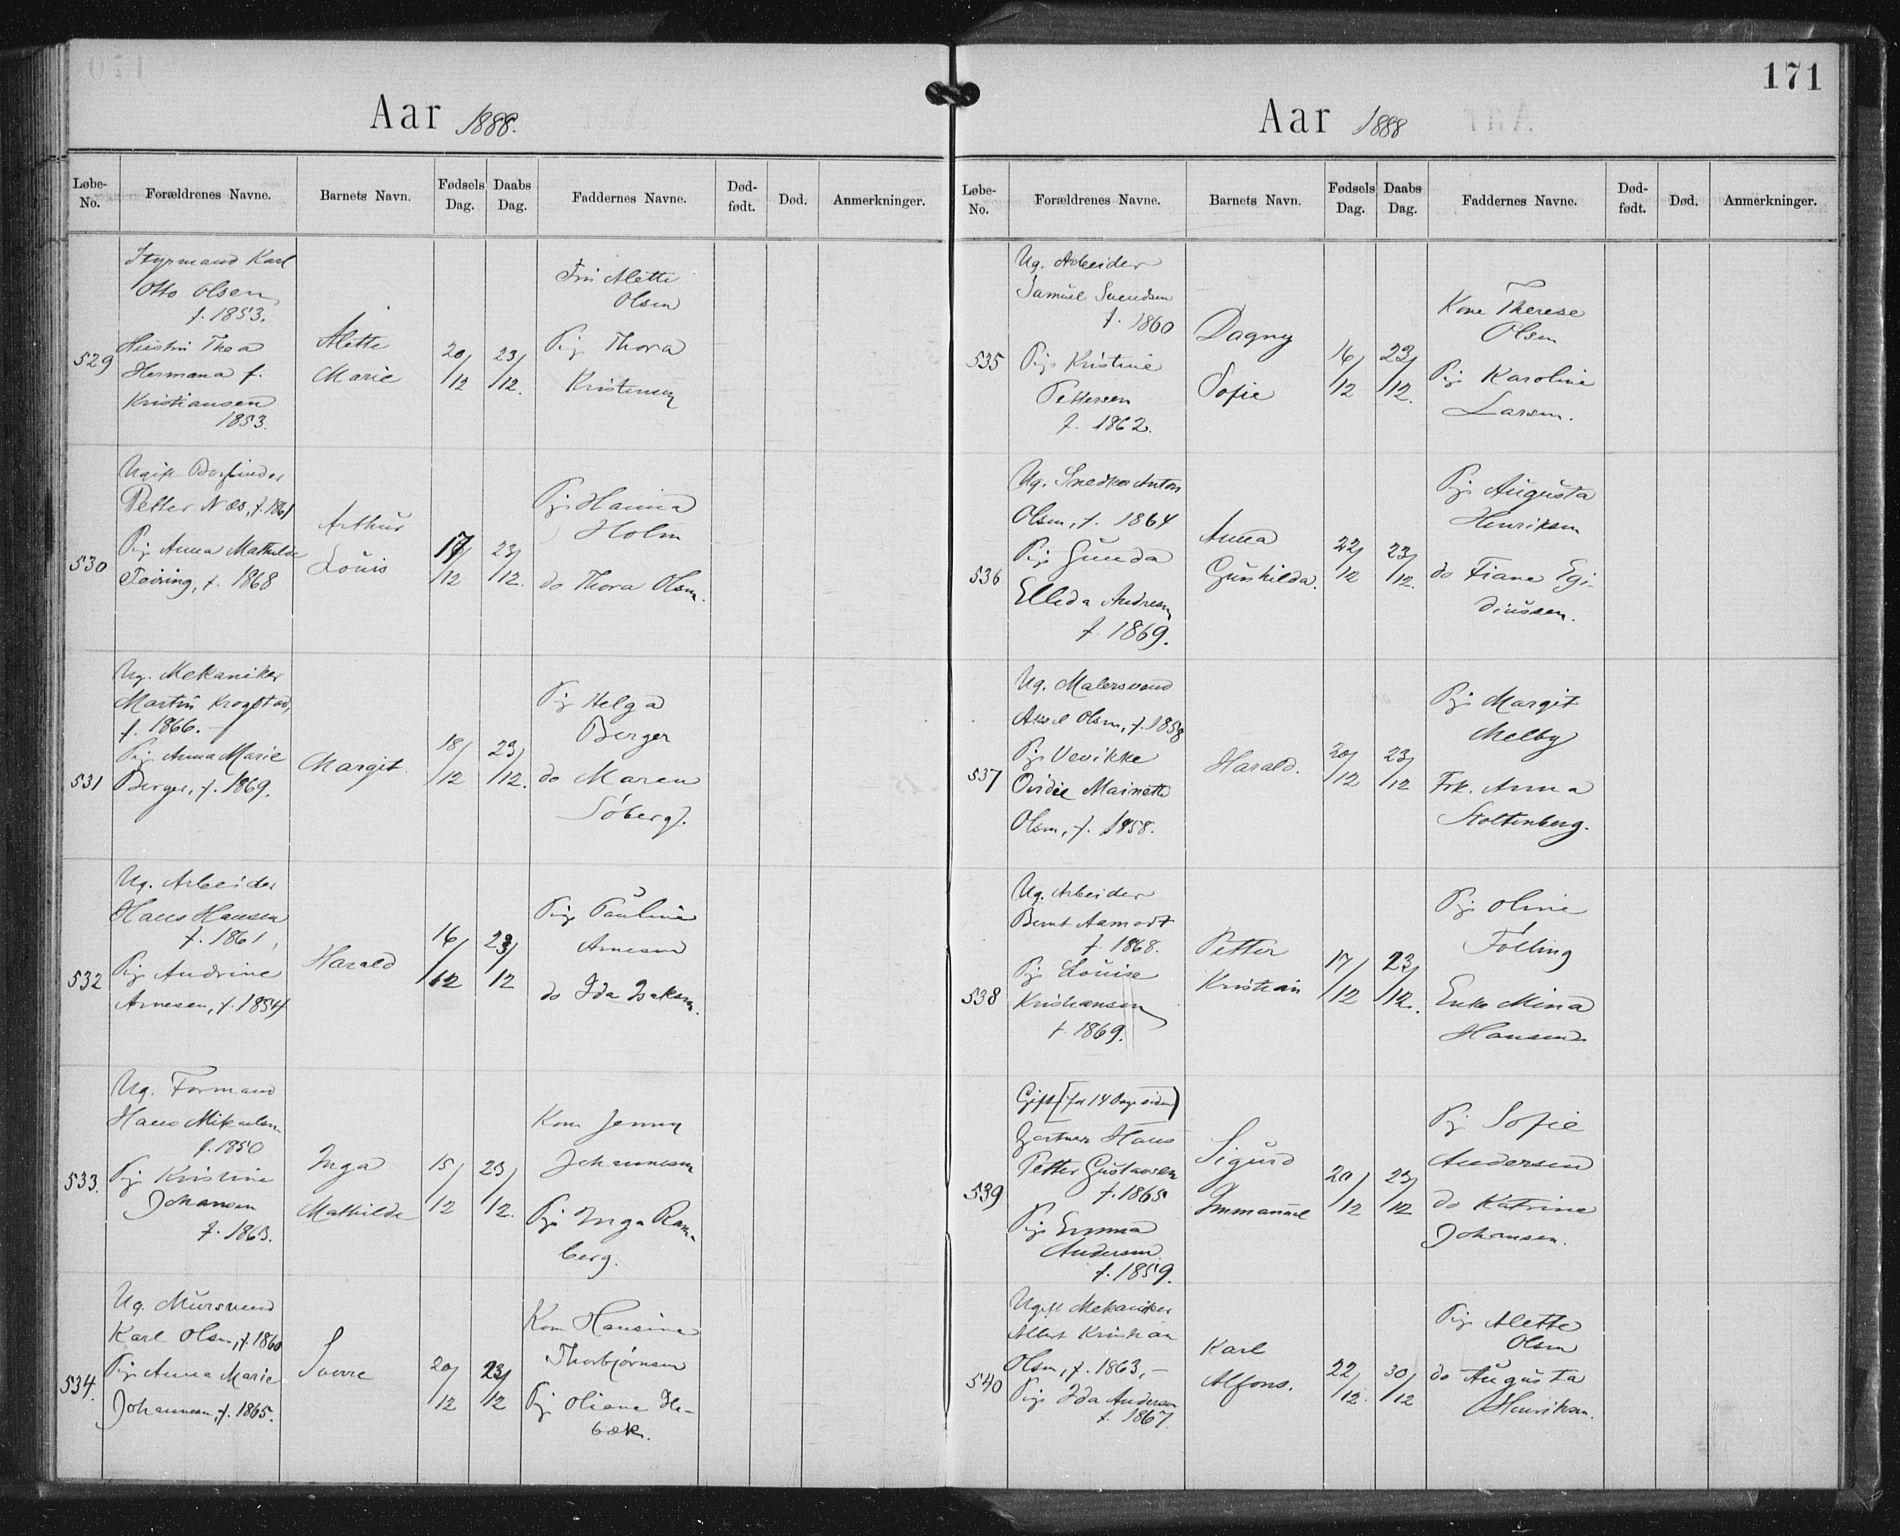 Aar 1888.
Løbe-No.
Forældrenes Navne.
Barnets Navn.
Fødsels Dag.
Daabs Dag.
Faddernes Navne.
Død-født.
Død.
Anmerkninger.
529
Styrmand Karl
Otto Olsen
f. 1853.
Hustru Thea
Hermana f.
Kristiansen
1853.
Alette
Marie
20/12
23/12.
Fru Alette
Olsen
Pig. Thora
Kristensen
530
Ugift
Petter Næs, f. 1861
Pig. Anna Mathilde
Feiring, f. 1868
Arthur
Louis
17/12
23/12.
Pig. Hanna
Holm
do Thora Olsen.
531
Ug. Mekaniker
Martin Krogstad,
f. 1866.
Pig. Anna Marie
Berger, f. 1869.
Margit
18/12
23/12.
Pig. Helga
Berger
do Maren
Söberg.
532
Ug. Arbeider
Hans Hansen
f. 1861,
Pig. Andrine
Arnesen, f. 1854
Harald
16/12
23/12
Pig. Pauline
Arnesen
do Ida Isaksen.
533.
Ug. Formand
Hans Mikaelsen
f. 1850
Pig. Kristine
Johansen
f. 1863.
Inga
Mathilde
15/12
23/12.
Kone Jenny
Johannesen
Pig. Inga Ram-
berg.
534.
Ug. Mursvend
Karl Olsen, f. 1860
Pig. Anna Marie
Johannesen, f. 1865.
Sverre
20/12
23/12
Kone Hansine
Thorbjørnsen
Pig. Oliane He-
bæk.
171
Aar 1888
Løbe-No.
Forældrenes Navne.
Barnets Navn.
Fødsels Dag.
Daabs Dag.
Faddernes Navne.
Død-født.
Død.
Anmerkninger.
535
Ug. Arbeider
Samuel Svendsen
f. 1860
Pig. Kristine
Pettersen
f. 1862.
Dagny
Sofie
16/12
23/12.
Kone Therese
Olsen
Pig. Karoline
Larsen.
536
Ug. Snedker Anton
Olsen, f. 1864
Pig. Gunda
Ellida Andresen
f. 1869.
Anna
Gunhilda.
22/12
23/12.
Pig. Augusta
Henriksen
do Fiane Egi-
diussen.
537
Ug. Malersvend
Aksel Olsen, f. 1858
Pig. Vevikke
Ovidie Marnette
Olsen, f. 1858.
Harald.
20/12
23/12
Pig. Margit
Melby
Frk. Anna
Stoltenberg.
538
Ug. Arbeider
Bernt Aamodt
f. 1868.
Pig. Louise
Kristiansen
f. 1869.
Petter
Kristian
17/12
23/12.
Pig. Oline
Folling
Enke Mina
Hansen
539
Gift (for 14 Dage siden)
Gartner Hans
Petter Gustavsen
f. 1865
Pig. Emma
Andersen
f. 1859.
Sigurd
Immanuel
20/12
23/12
Pig. Sofie
Andersen
do Katrine
Johansen.
540
Ugift Mekaniker
Albert Kristian
Olsen, f. 1863, –
Pig. Ida Andersen
f. 1867.
Karl
Alfons.
22/12.
30/12
Pig. Alette
Olsen
do Augusta
Henriksen.